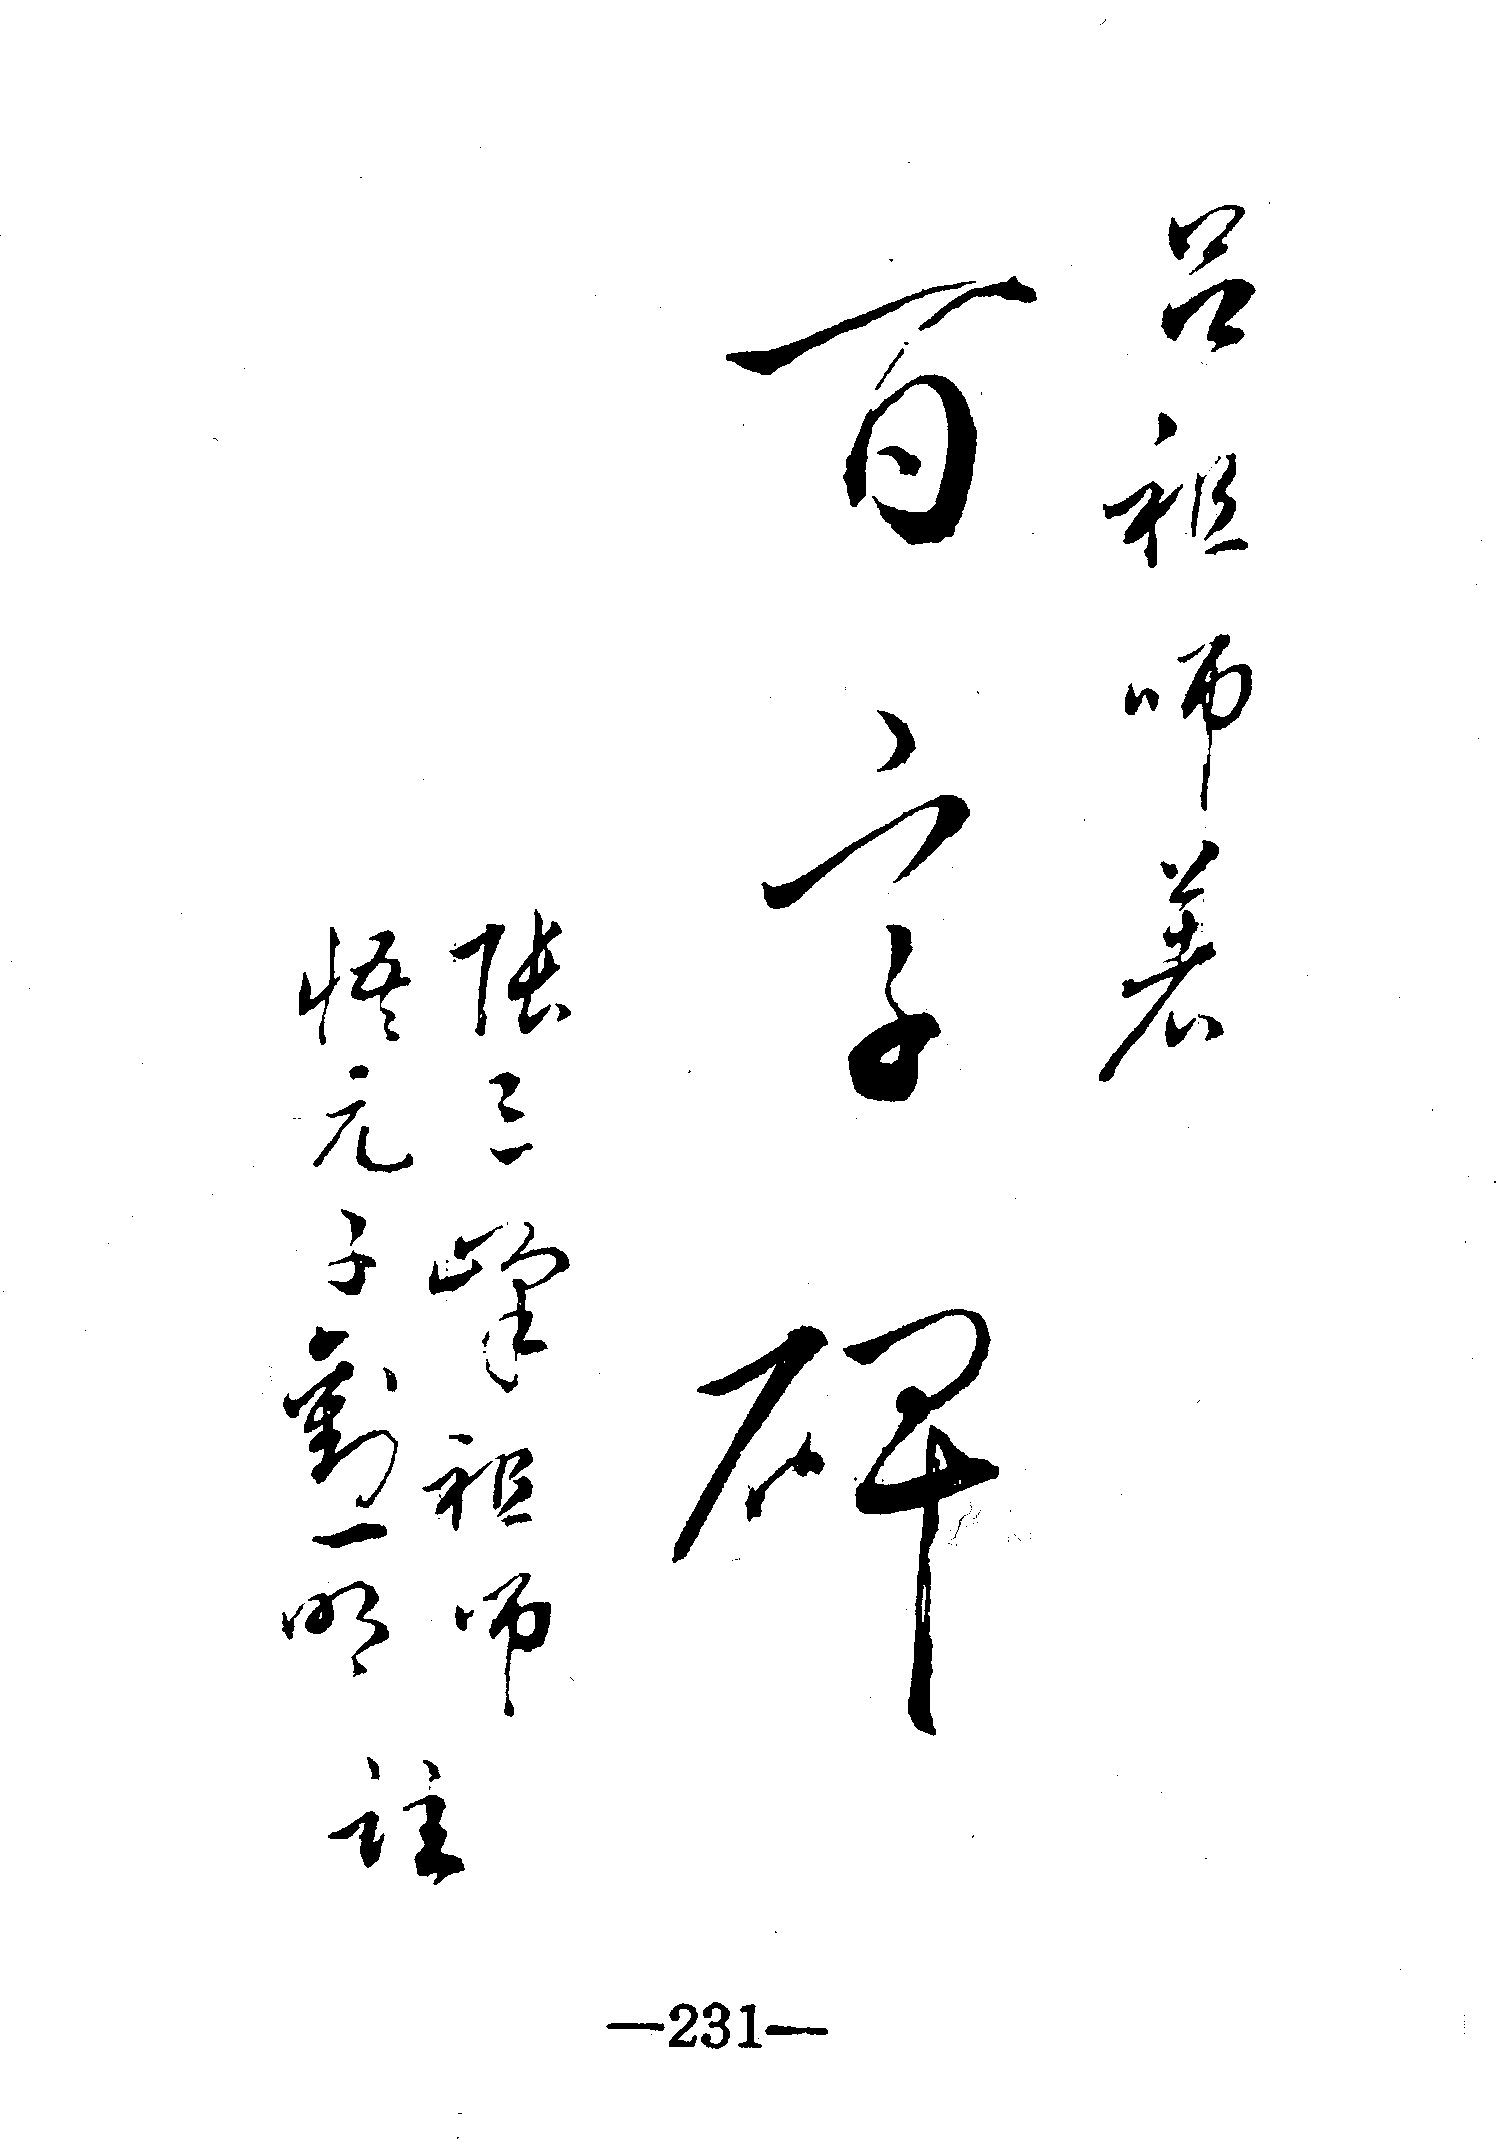 呂祖師著
百字碑
張三峯祖師
悟元子劉一明
註
—231—